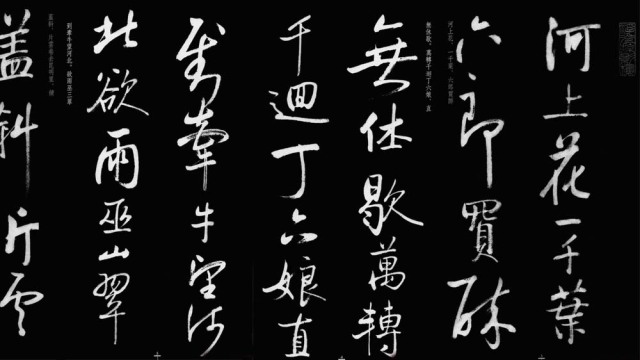 河上花一千葉
六郎買醉
河上花，一千葉，六郎買醉
無休歇。萬轉千迴丁六娘，直
無休歇萬轉
千迴丁六娘直
到牽牛望河
北欲雨巫山翠
到牽牛望河北。欲雨巫山翠
蓋斜，片雲卷去昆明黑。饋
蓋斜片雲